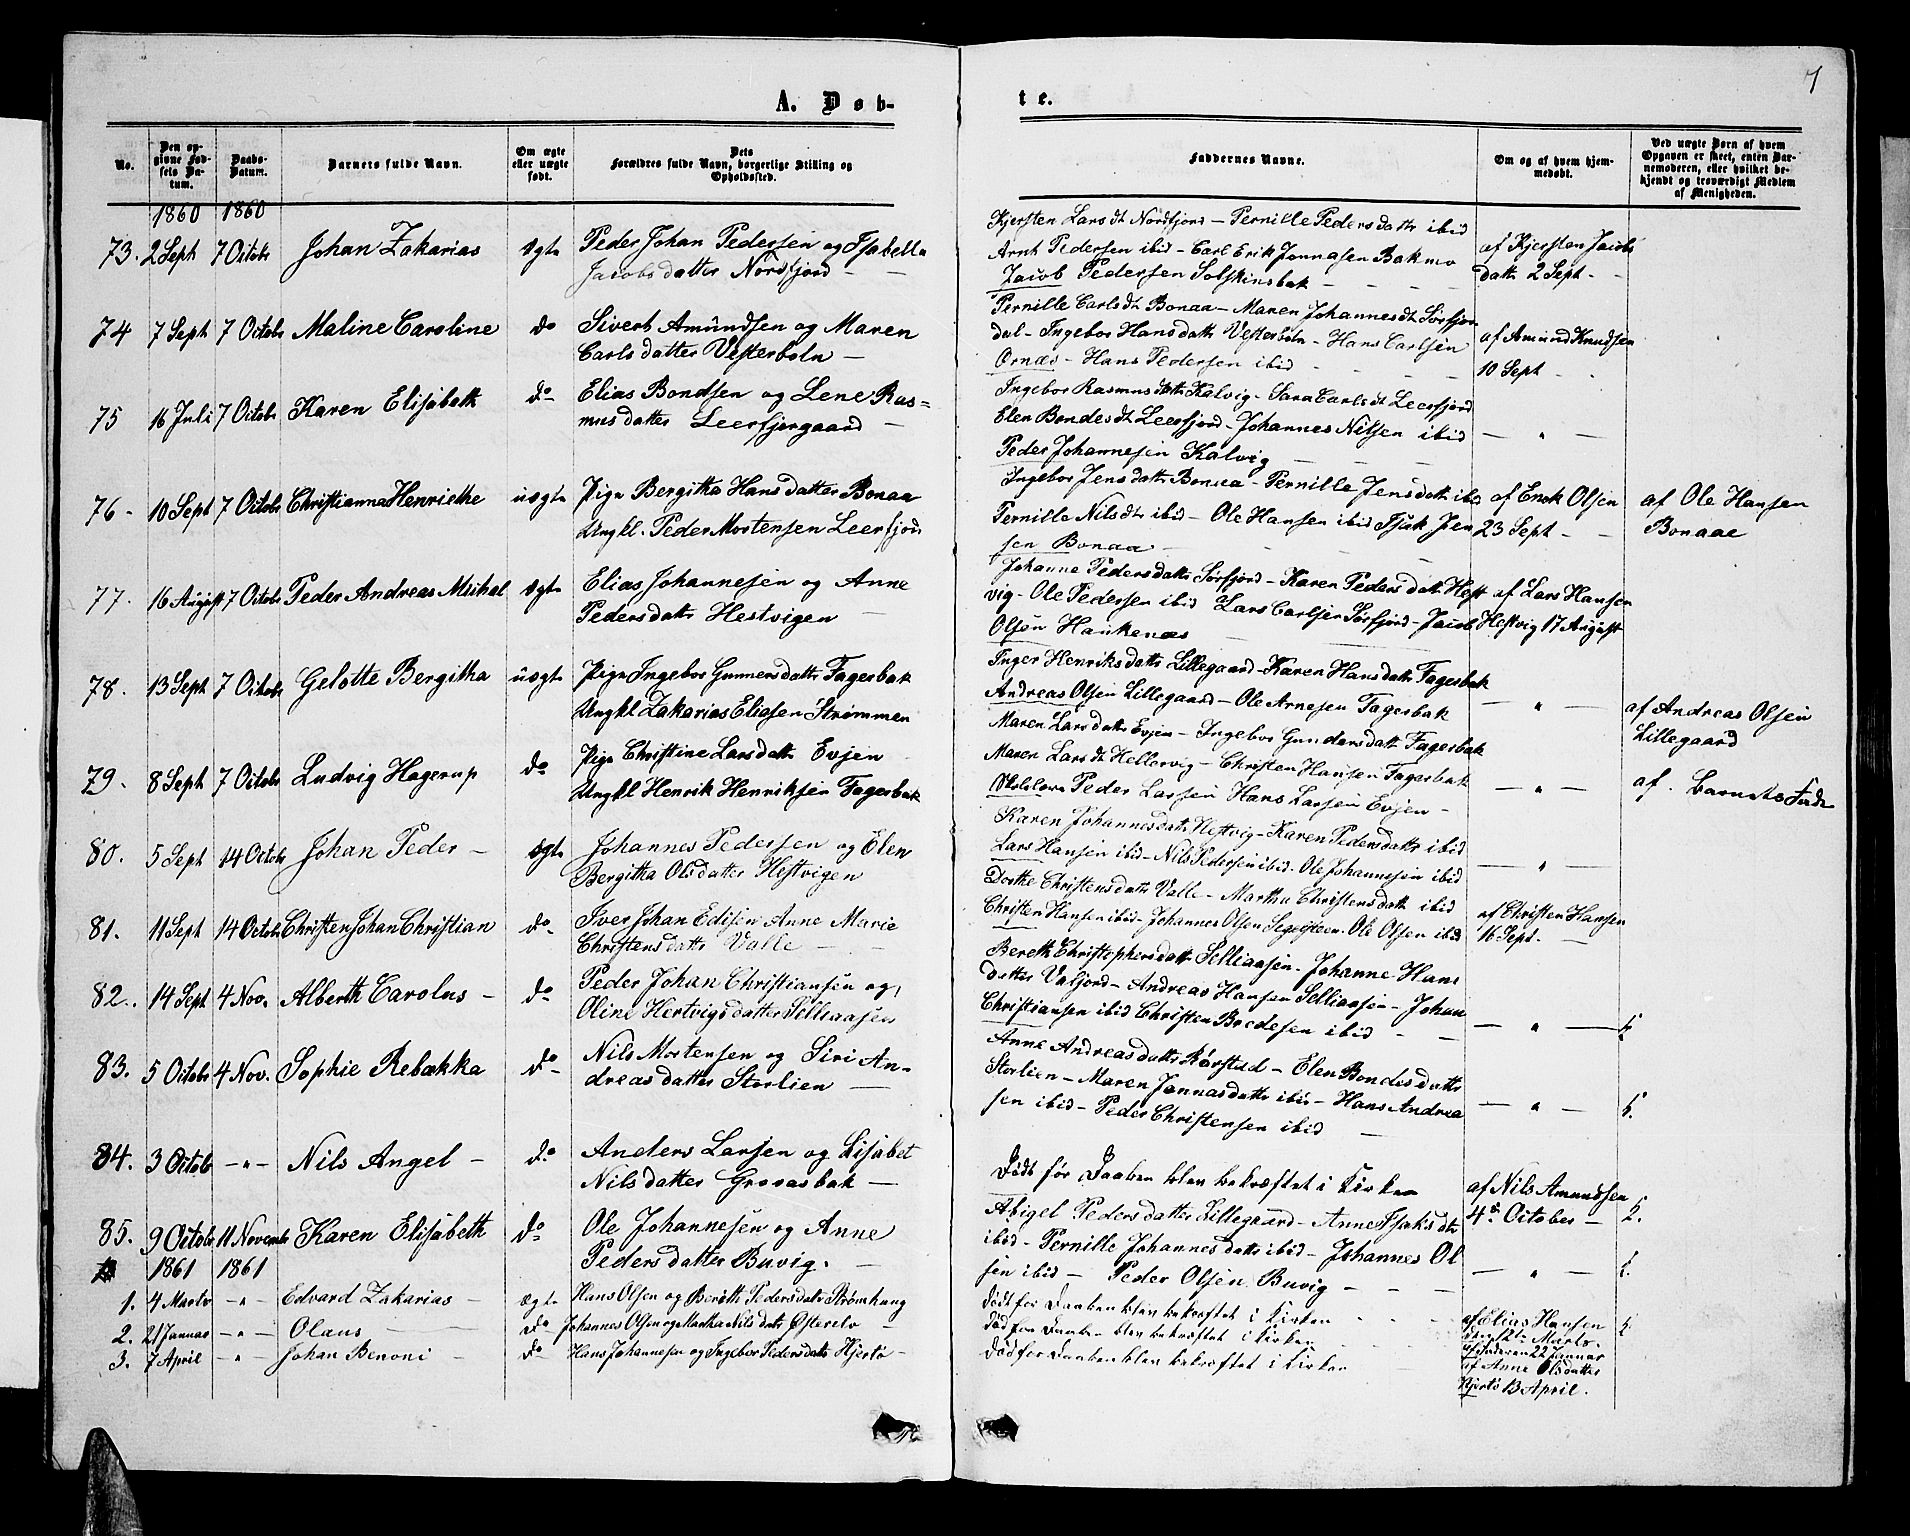 7
A. Døb-
te.
No.
Den opgivne Fødsels Datum.
Daabs-Datum.
Barnets fulde Navn.
Om ægte eller uægte født.
Dets Forældres fulde Navn, borgerlige Stilling og Opholdssted.
Faddernes Navne.
Om og af hvem hjemmedøbt.
Ved uægte Børn af hvem Opgaven er skeet, enten Barnemoderen, eller hvilket bekjendt og troværdigt Medlem af Menigheden.
1860 1860
73. 2 Sept 7 Octobr Johan Zakarias ægte
Peder Johan Pedersen og Isabella
Jacobsdatter Nordfjord —
Kjersten Larsdt Nordfjord - Pernille Pedersdattr ibid
Arnt Pedersen ibid - Carl Erik Jonnasen Bakmo
Jacob Pedersen Solskinsbak - -
af Kjersten Jacobs
datter 2 Sept -
74 7 Sept 7 Octobr Maline Caroline do
Sivert Amundsen og Maren
Carlsdatter Vesterboln —
Pernille Carlsdt Bonaa - Maren Johannesdt Sørfjor
dal - Ingebor Hansdattr Vesterboln - Hans Carlsen
Ornæs - Hans Pedersen ibid -
af Amund Knudsen
10 Sept -
75 16 Juli 7 Octobr Karen Elisabeth do
Elias Bondsen og Lene Ras=
musdatter Leerfjorgaard —
Ingebor Rasmusdattr Kalvig - Sara Carlsdt Leerfjord
Elen Bondesdt Leerfjord - Johannes Nilsen ibid
Peder Johannesen Kalvig
— " —
76 - 10 Sept 7 Octobr Christianna Henriethe uægte
Pige Bergitha Hansdatter Bonaa
Ungkl. Peder Mortensen Leerfjord
Ingebor Jensdatter Bonaa - Pernille Jensdattr ibid
Pernille Nilsdt ibid - Ole Hansen ibid Isak Jen
sen Bonaa -
af Enok Olsen
23 Sept -
af Ole Hansen
Bonaae
77. 16 August 7 Octobr Peder Andreas Mikal ægte
Elias Johannesen og Anne
Pedersdattr Hestvigen
Johanne Pedersdattr Sørfjord - Karen Pedersdattr Hest
vig - Ole Pedersen ibid Lars Carlsen Sørfjord - Jacob
Olsen Haukenæs —
af Lars Hansen
Hestvig 17 August
78. 13 Sept 7 Octobr Gelotte Bergitha uægte
Pige Ingebor Gunnersdattr Fagerbak
Ungkl Zakarias Eliasen Strømmen
Inger Henriksdattr Lillegaard - Karen Hansdattr Fagerbak
Andreas Olsen Lillegaard - Ole Arnesen Fagerbak
Maren Larsdattr Evjen - Ingebor Gundersdattr Fagerbak
— " —
af Andreas Olsen
Lillegaard
79. 8 Sept 7 Octobr Ludvig Hagerup do
Pige Christine Larsdattr Evjen
Ungkl Henrik Henriksen Fagerbak
Maren Larsdt Hellervig - Christen Hansen Fagerbak
Peder Larsen Hans Larsen Evjen -
— " —
af Barnets Fader
80. 5 Sept 14 Octobr Johan Peder - ægte
Johannes Pedersen og Elen
Bergitha Olsdatter Hestvigen
Karen Johannesdattr Hestvig - Karen Pedersdattr ibid
Lars Hansen ibid - Nils Pedersen ibid - Ole Johannesen ibid
— " —
81. 11 Sept 14 Octobr Christen Johan Christian do
Iver Johan Edisen Anne Marie
Christensdattr Valle —
Dorthe Christensdattr Valle - Martha Christensdattr ibid
Christen Hansen ibid - Johannes Olsen Segelsteen - Ole Olsen ibid
af Christen Hansen
16 Sept. -
82. 14 Sept 4 Nov. Alberth Carolus - do
Peder Johan Christiansen og
Oline Hertvigsdatter Selliaasen
Bereth Christephersdattr Selliaasen - Johanne Hans
datter Valjord - Andreas Hansen Selliaasen - Johan
Christiansen ibid Christen Bredesen ibid -
— " —
83. 5 Octobr 4 Nov. Sophie Rebekka do
Nils Mortensen og Siri An-
dreasdatter Storlien —
Anne Andreasdattr Rørstad - Elen Bondesdattr
Storlien - Maren Jannasdattr ibid - Hans Andrea
sen ibid - Peder Christensen ibid —
— " —
84. 3 Octobr - " - Nils Angel - do
Anders Larsen og Lisabet
Nilsdatter Grovasbak —
Dødt før Daaben blev bekræftet i Kirken
af Nils Amundsen
4de October -
85. 9 Octobr 11 Novembr Karen Elisabeth do
Ole Johannesen og Anne
Pedersdatter Buvig. —
Abigel Pedersdatter Lillegaard - Anne Isaksdtr
ibid - Pernille Johannesdattr ibid - Johannes Ol
sen ibid - Peder Olsen Buvig -
— " —
1861 1861
1. 4 Marts - " - Edvard Zakarias - ægte
Hans Olsen og Bereth Pedersdattr Strømhaug
Dødt før Daaben blev bekræftet i Kirken
af Elias Hansen
Marts.
2. 21 Januar - " - Olaus do
Johannes Olsen og Martha Nilsdattr Østerelv -
Død før Daaben blev bekræftet i Kirken
af Faderen 22 Januar
3. 7 April - " - Johan Benoni - do
Hans Johannesen og Ingebor Pedersdattr Hjertø -
Død før Daaben blev bekræftet i Kirken
af Anne Olsdatter
Hjertø 13 April.